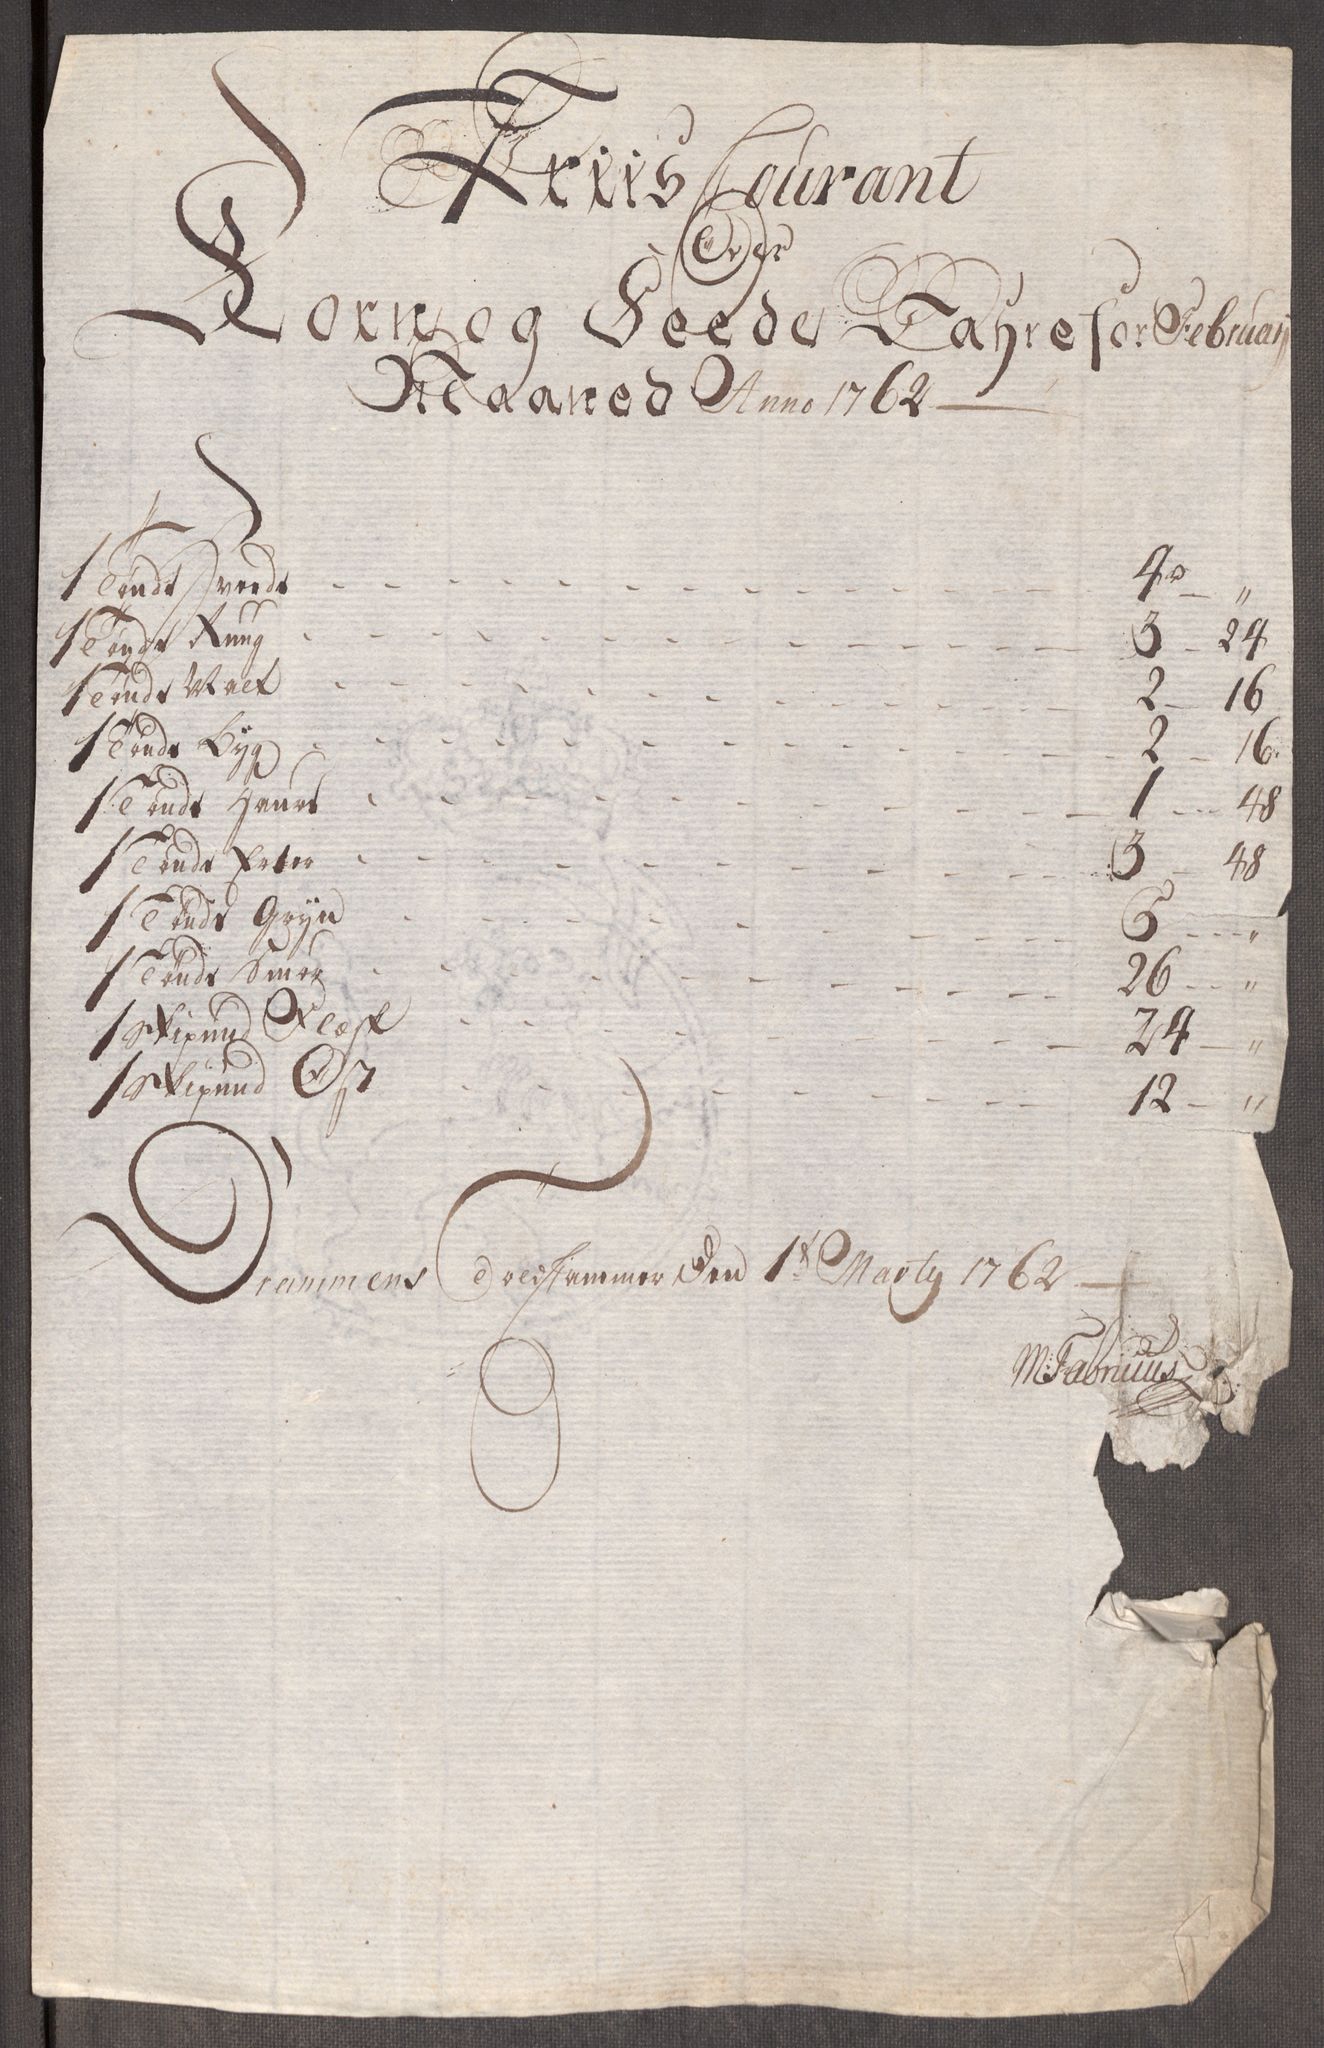 Priis Courant
Over
Korn og Feede Wahre for Februarij
Maaned Anno 1762
1 Tønde Hveede 4 rd "
1 Tønde Ruug 3 24
1 Tønde Malt 2 16
1 Tønde Byg 2 16
1 Tønde Havre 1 48
1 Tønde Erter 3 48
1 Tønde Gryn 6 "
1 Tønde Smør 26 "
1 Skipund Flæsk 24 "
1 Skipund Ost 12 "
Drammens Told Kammer Den 1t Marty 1762
M: Fabritius